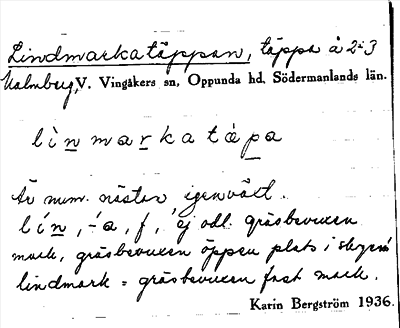 Lindmarkatäppan, täppa å 2:3
Malmberg, V. Vingåkers sn, Oppunda hd, Södermanlands län.
lìnmarkatäpa
Är num. nästan igenväxt.
lín, -a, f, "ej odl. gräsbevuxen
mark, gräsbevuxen öppen plats i skogen"
lindmark = gräsbevuxen fast mark.
Karin Bergström 1936.